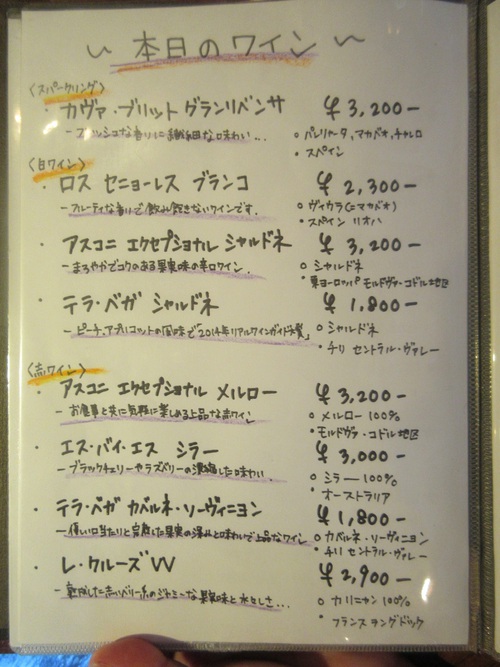 ～ 本日のワイン ～
〈スパークリング〉
・ カヴァ・ブリット グランリベンサ ¥3,200-
- フレッシュな香りに繊細な味わい… ○ パレリャータ,マカベオ,チャレロ
• スペイン
〈白ワイン〉
・ ロス セニョーレス ブランコ ¥2,300-
- フルーティな香りで飲み飽きないワインです. ○ ヴィカラ(=マカベオ)
• スペイン リオハ
・ アスコニ エクセプショナル シャルドネ ¥3,200-
- まろやかでコクのある果実味の辛口ワイン. ○ シャルドネ
• 東ヨーロッパ モルドヴァ・コドル地区
・ テラ・ベガ シャルドネ ¥1,800-
- ピーチ,アプリコットの風味で「2014年リアルワインガイド大賞」 ○ シャルドネ
• チリ セントラル・ヴァレー
〈赤ワイン〉
・ アスコニ エクセプショナル メルロー ¥3,200-
- お食事と共に気軽に楽しめる上品な赤ワイン ○ メルロー 100%
• モルドヴァ・コドル地区
・ エス・バイ・エス シラー ¥3,000-
- ブラックチェリーやラズベリーの濃縮した味わい. ○ シラー 100%
• オーストラリア
・ テラ・ベガ カベルネ・ソーヴィニヨン ¥1,800-
- 優しい口当たりと完熟した果実の深みと味わいで上品なワイン ○ カベルネ・ソーヴィニヨン
• チリ セントラル・ヴァレー
・ レ・クルーズVV ¥2,900-
- 熟成した赤いベリー系のジャミーな果実味と水々しさ… ○ カリニャン 100%
• フランス ラングドック